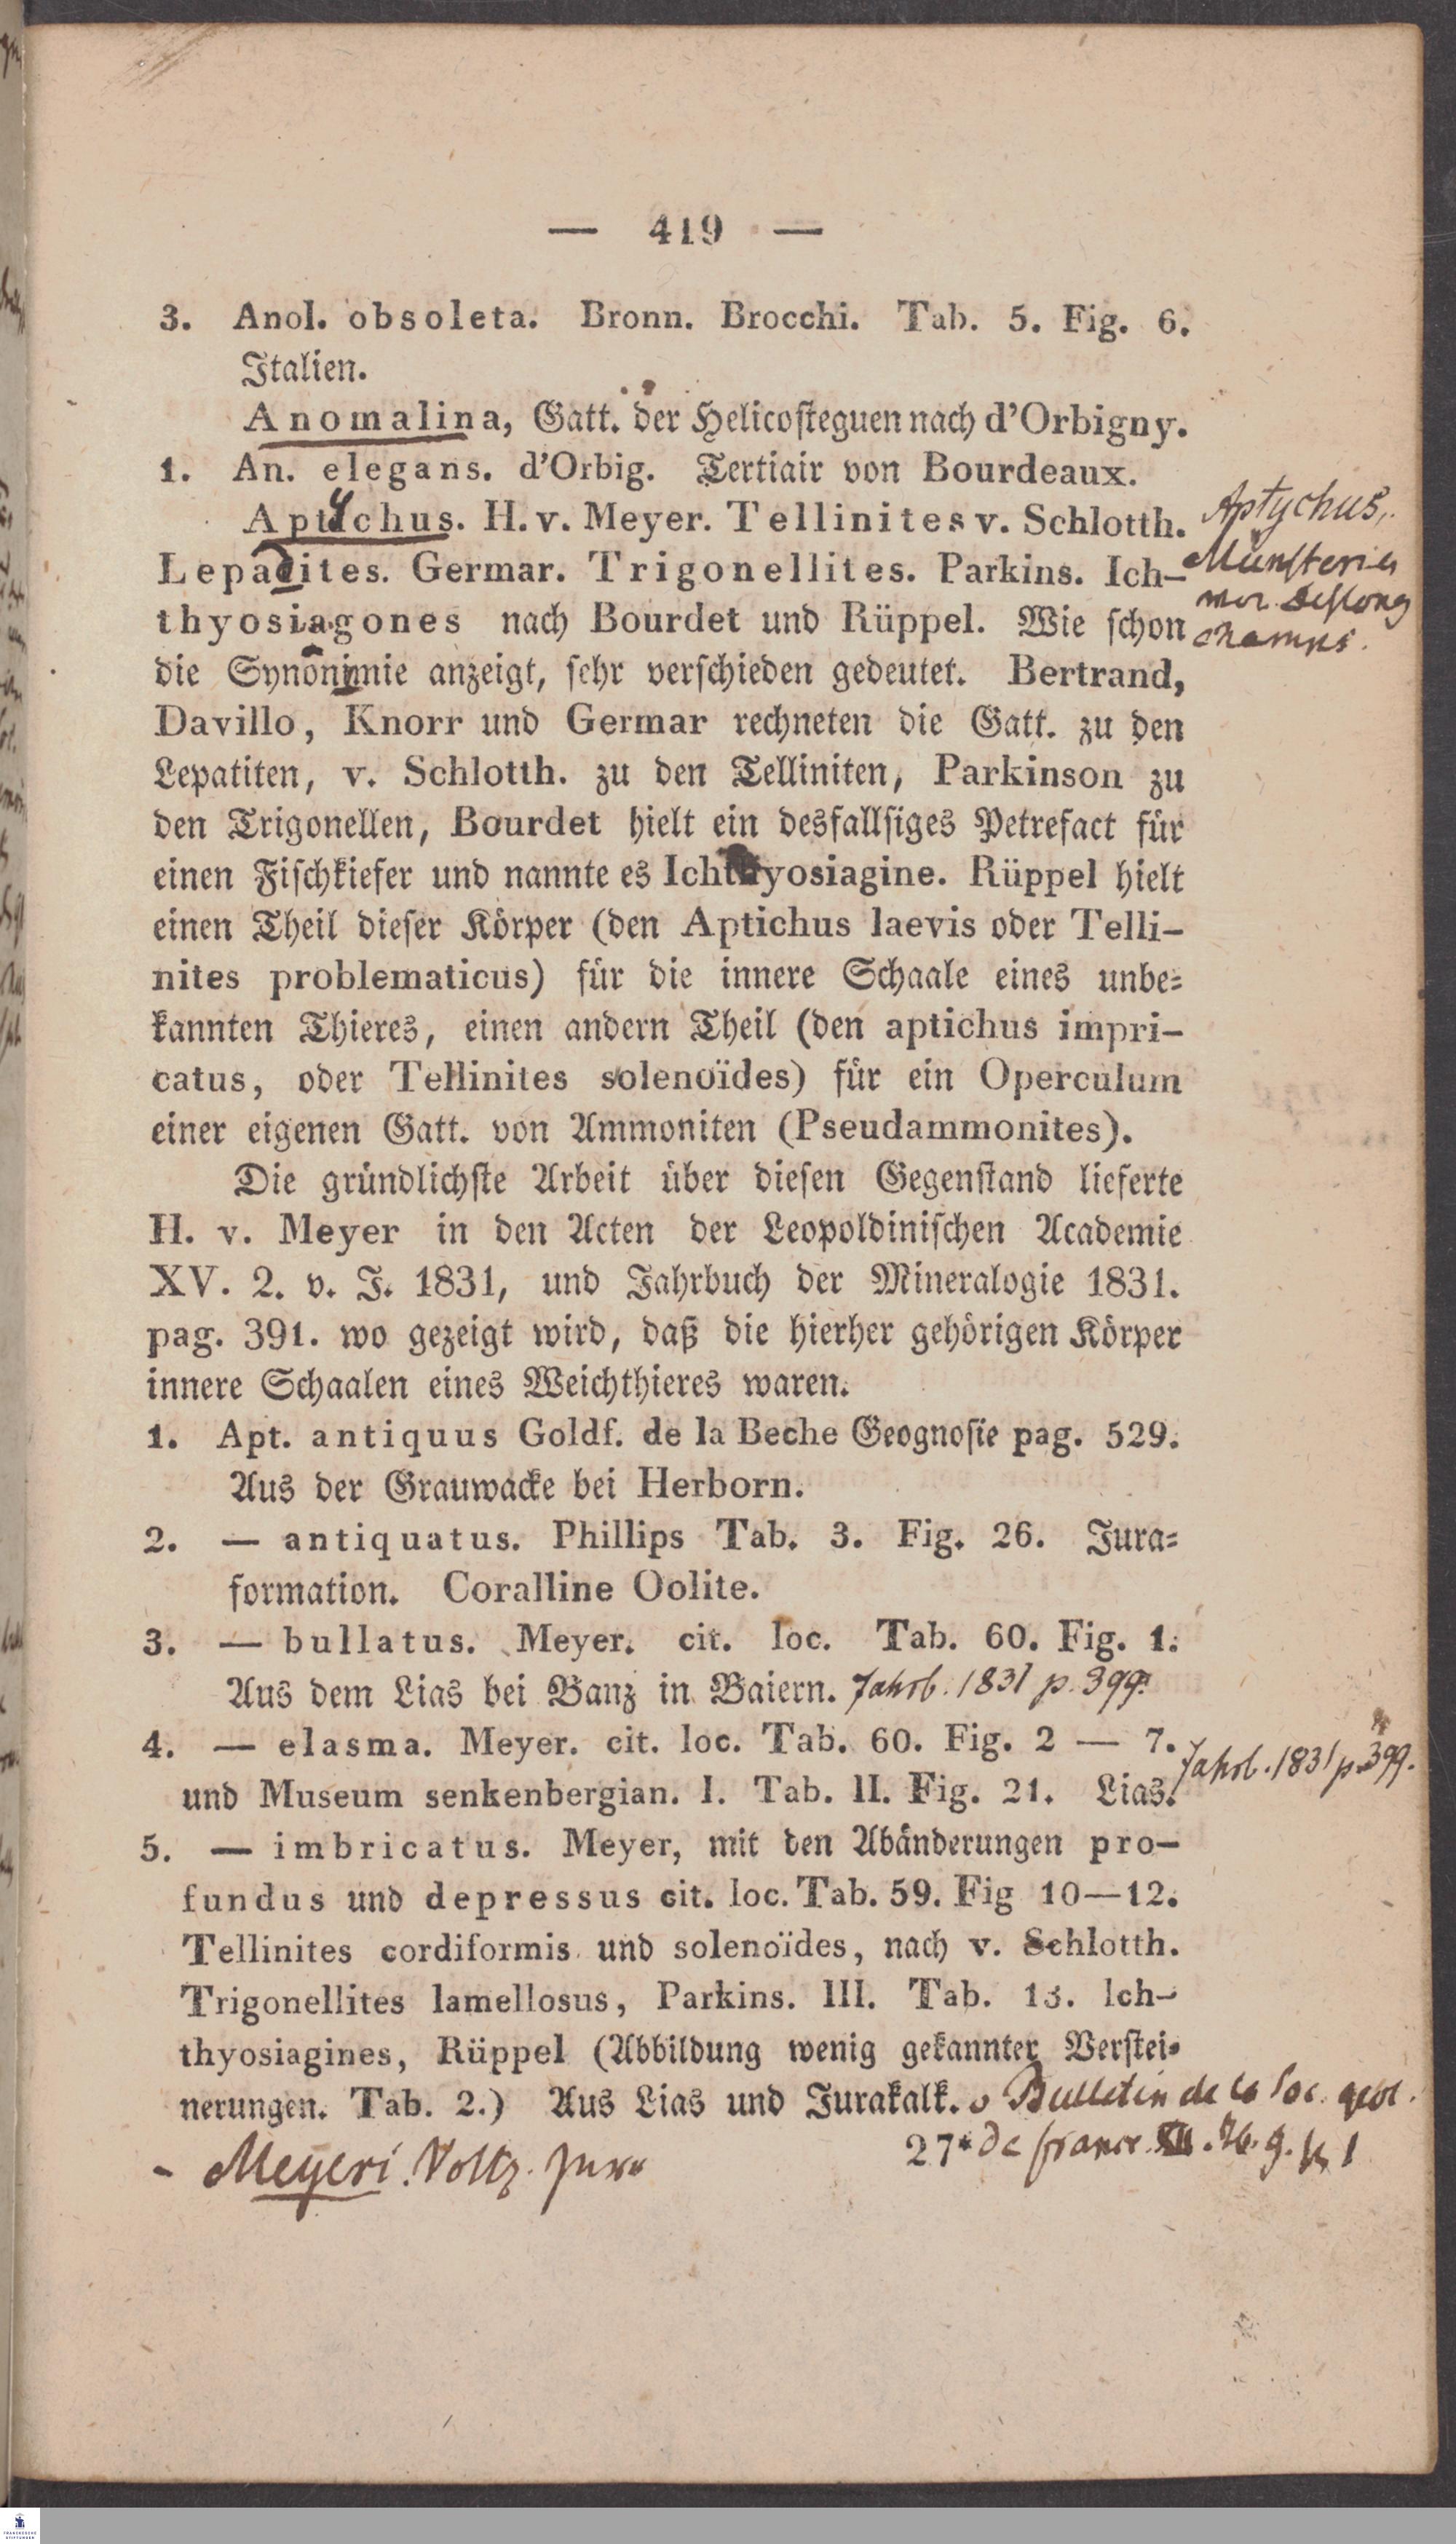 — 419 —
3. Anol. obsoleta. Bronn. Brocchi. Tab. 5. Fig. 6.
Italien.
Anomalina, Gatt. der Helicosteguen nach d'Orbigny.
1. An. elegans. d'Orbig. Tertiair von Bourdeaux.
Aptychus. H. v. Meyer. Tellinites v. Schlotth.
Aptychus,
Lepadites. Germar. Trigonellites. Parkins. Ich-
Münsteria
thyosiagones nach Bourdet und Rüppel. Wie schon
Deslong
champs.
die Synonimie anzeigt, sehr verschieden gedeutet. Bertrand,
Davillo, Knorr und Germar rechneten die Gatt. zu den
Lepatiten, v. Schlotth. zu den Telliniten, Parkinson zu
den Trigonellen, Bourdet hielt ein desfallsiges Petrefact für
einen Fischkiefer und nannte es Ichthyosiagine. Rüppel hielt
einen Theil dieser Körper (den Aptichus laevis oder Telli-
nites problematicus) für die innere Schaale eines unbe-
kannten Thieres, einen andern Theil (den aptichus impri-
catus, oder Tellinites solenoïdes) für ein Operculum
einer eigenen Gatt. von Ammoniten (Pseudammonites).
Die gründlichste Arbeit über diesen Gegenstand lieferte
H. v. Meyer in den Acten der Leopoldinischen Academie
XV. 2. v. J. 1831, und Jahrbuch der Mineralogie 1831.
pag. 391. wo gezeigt wird, daß die hierher gehörigen Körper
innere Schaalen eines Weichthieres waren.
1. Apt. antiquus Goldf. de la Beche Geognosie pag. 529.
Aus der Grauwacke bei Herborn.
2. — antiquatus. Phillips Tab. 3. Fig. 26. Jura-
formation. Coralline Oolite.
3. — bullatus. Meyer. cit. loc. Tab. 60. Fig. 1.
Aus dem Lias bei Banz in Baiern. Jahrb. 1831 p. 399.
4. — elasma. Meyer. cit. loc. Tab. 60. Fig. 2 — 7.
Jahrb. 1831 p. 399.
und Museum senkenbergian. I. Tab. II. Fig. 21. Lias.
5. — imbricatus. Meyer, mit den Abänderungen pro-
fundus und depressus cit. loc. Tab. 59. Fig 10—12.
Tellinites cordiformis und solenoïdes, nach v. Schlotth.
Trigonellites lamellosus, Parkins. III. Tab. 13. Ich-
thyosiagines, Rüppel (Abbildung wenig gekannter Verstei-
nerungen. Tab. 2.) Aus Lias und Jurakalk. v Bulletin de la Soc. geol.
27* de france
- Meyeri. Voltz. Jura
FRANCKESCHE
STIFTUNGEN